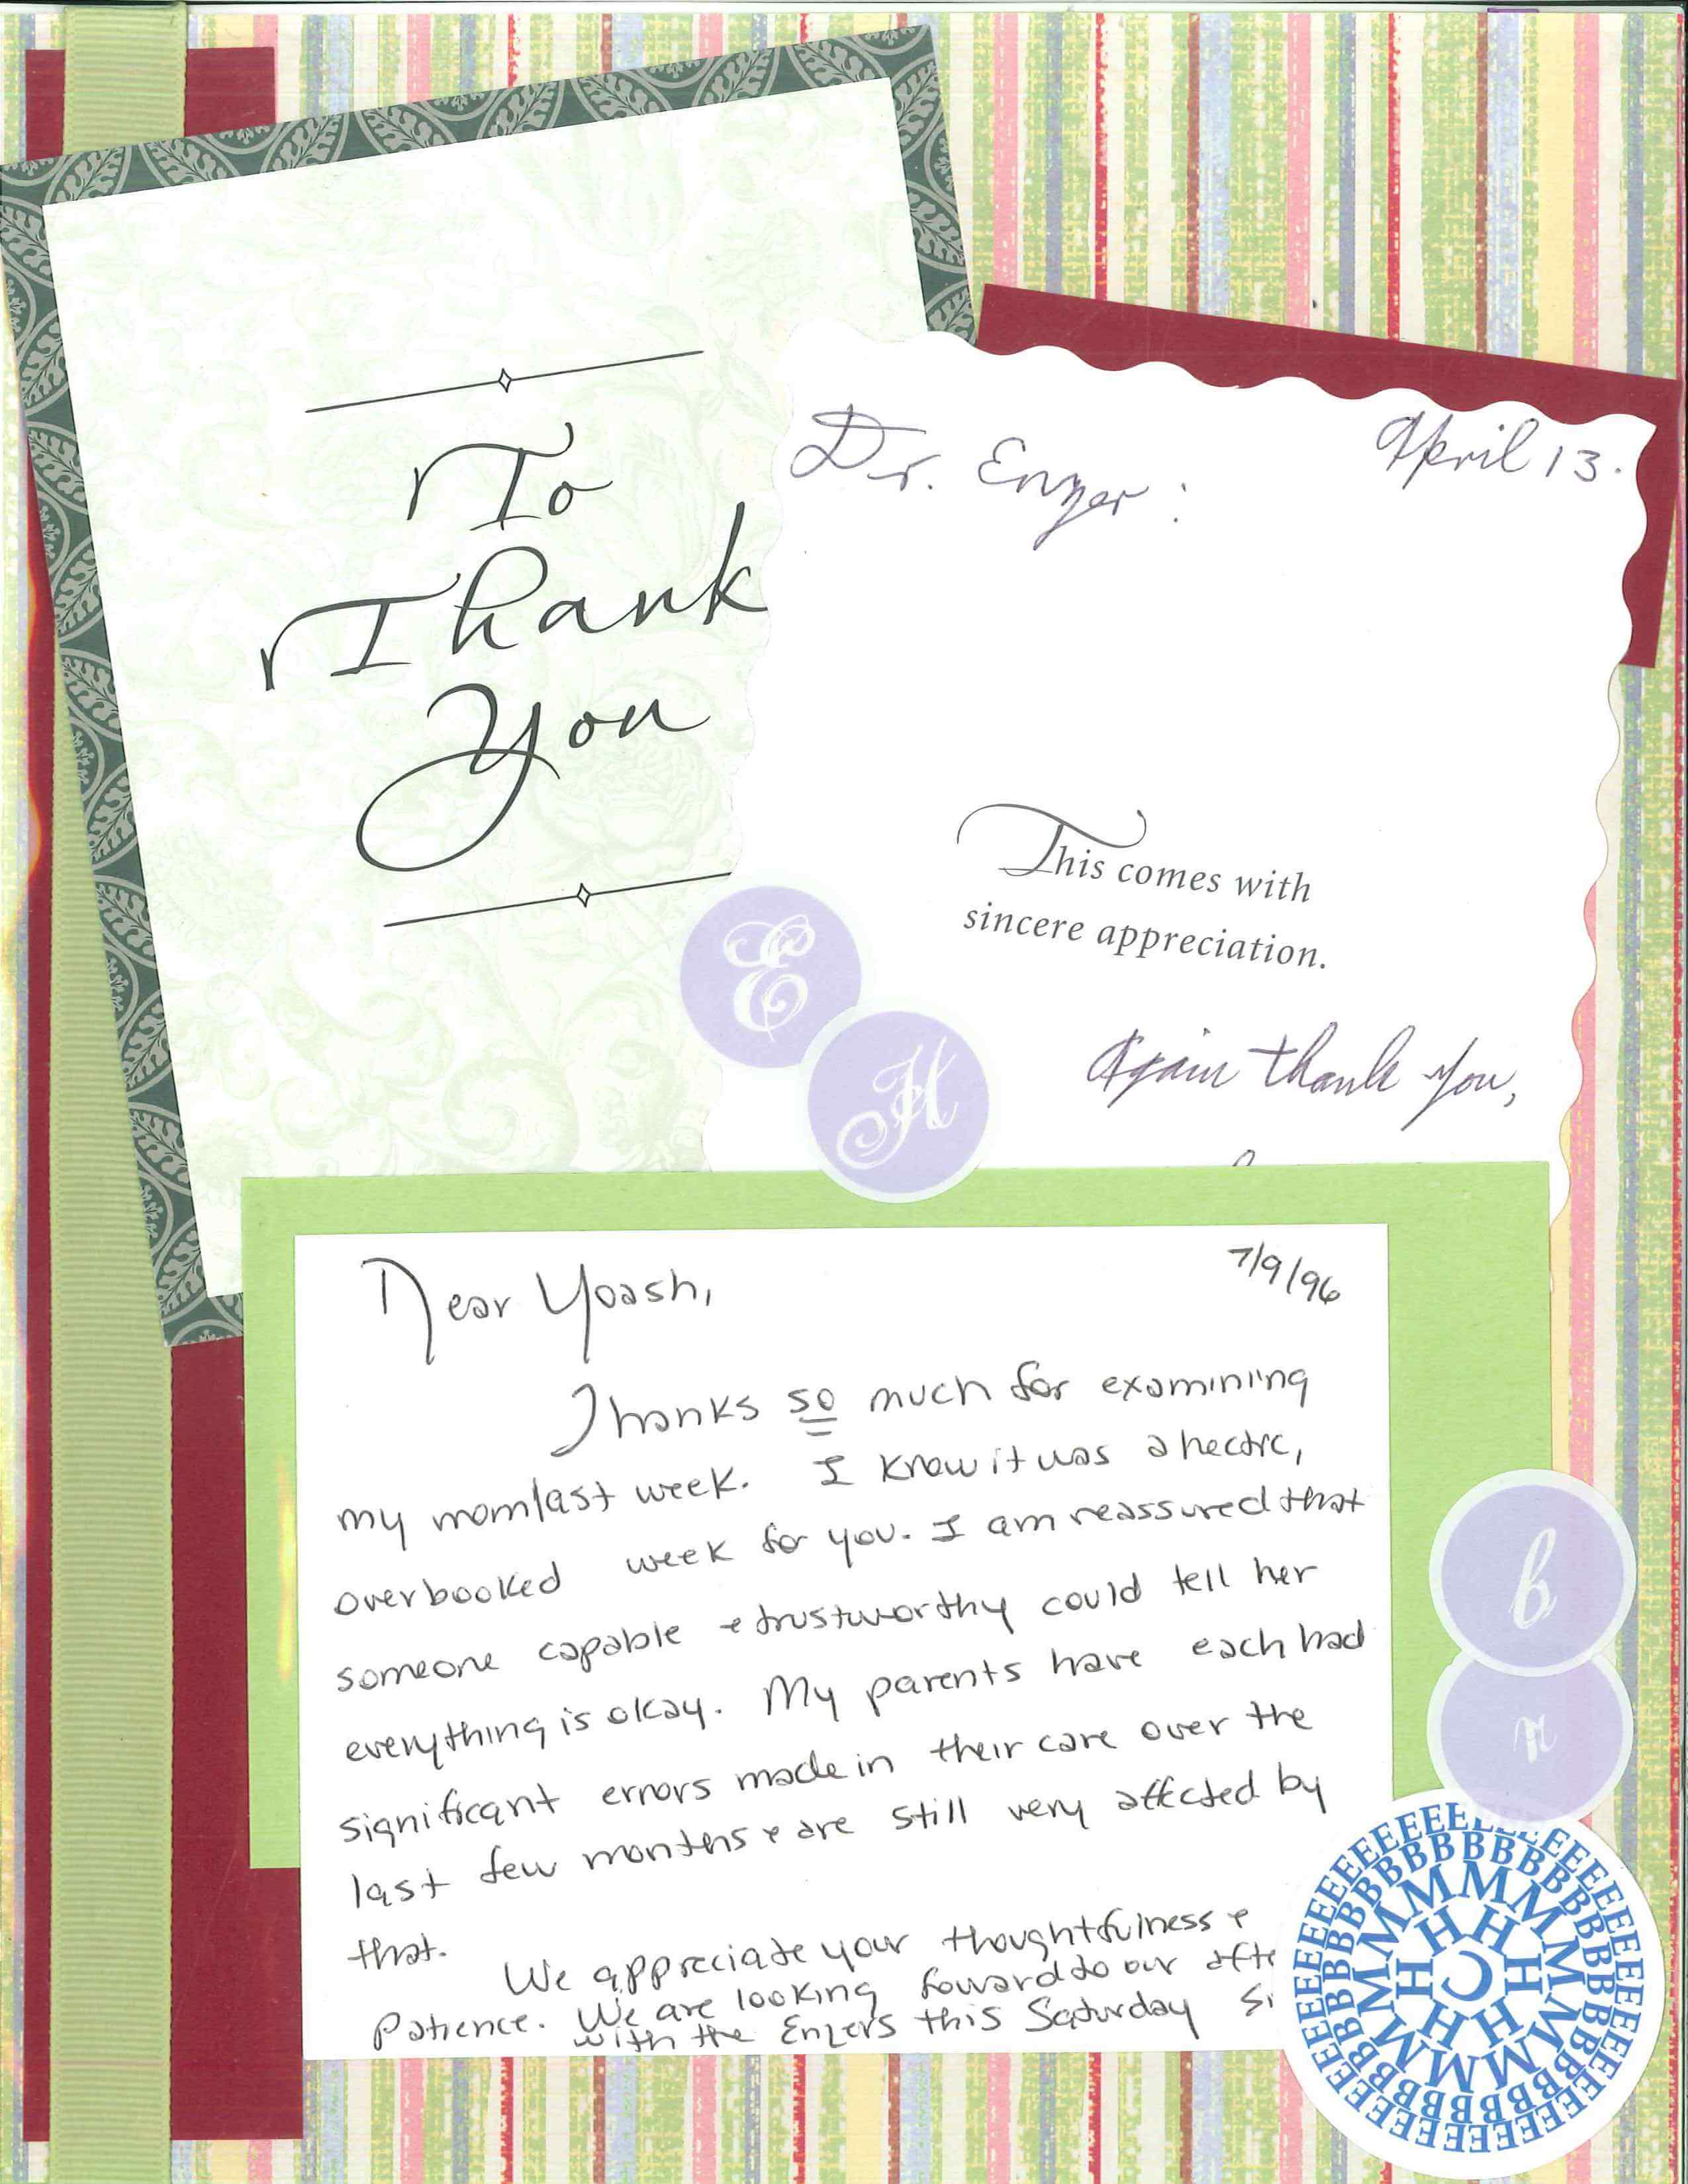 To
Thank
You
Dr. Enzer:
April 13.
This comes with
sincere appreciation.
Again thank you,
E
H
Dear Yoash,
7/9/96
Thanks so much for examining
my mom last week. I know it was a hectic,
overbooked week for you. I am reassured that
someone capable & trustworthy could tell her
everything is okay. My parents have each had
significant errors made in their care over the
last few months & are still very affected by
that.
We appreciate your thoughtfulness &
patience. We are looking foward to our afte
with the Enzers this Saturday Si
b
n
EEEEEEEEEEEEEEEEEEEEEEEEEEEEEEEEEEEEEEEE
BBBBBBBBBBBBBBBBBBBBBBBBBBBBBBBB
MMMMMMMMMMMMMMMM
HHHHHHHH
C